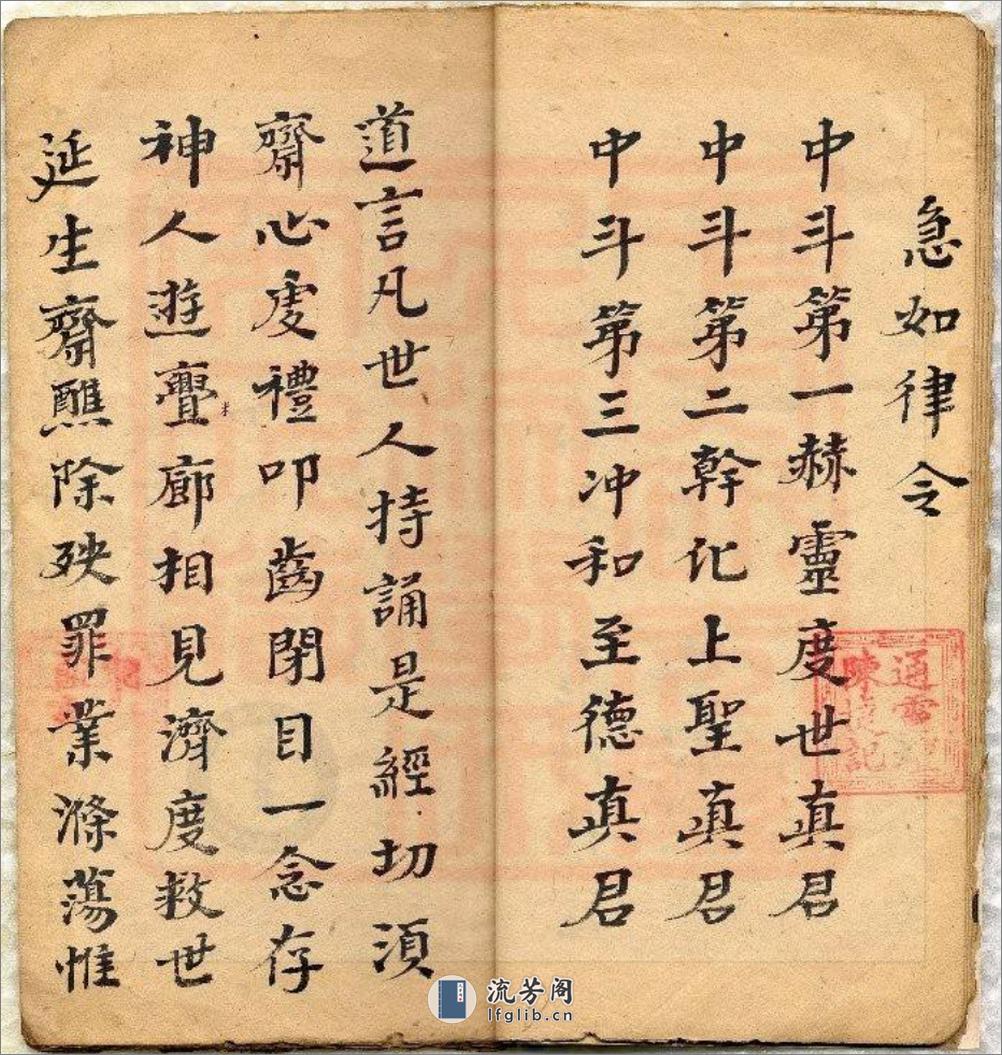 急如律令
中斗第一赫靈度世真君
中斗第二幹化上聖真君
中斗第三冲和至德真君
道言凡世人持誦是經切須
齋心虔禮叩齒閉目一念存
神人遊亹廊相見濟度救世
延生齋醮除殃罪業滌蕩惟
通雷
陳記
流芳阁
lfglib.cn